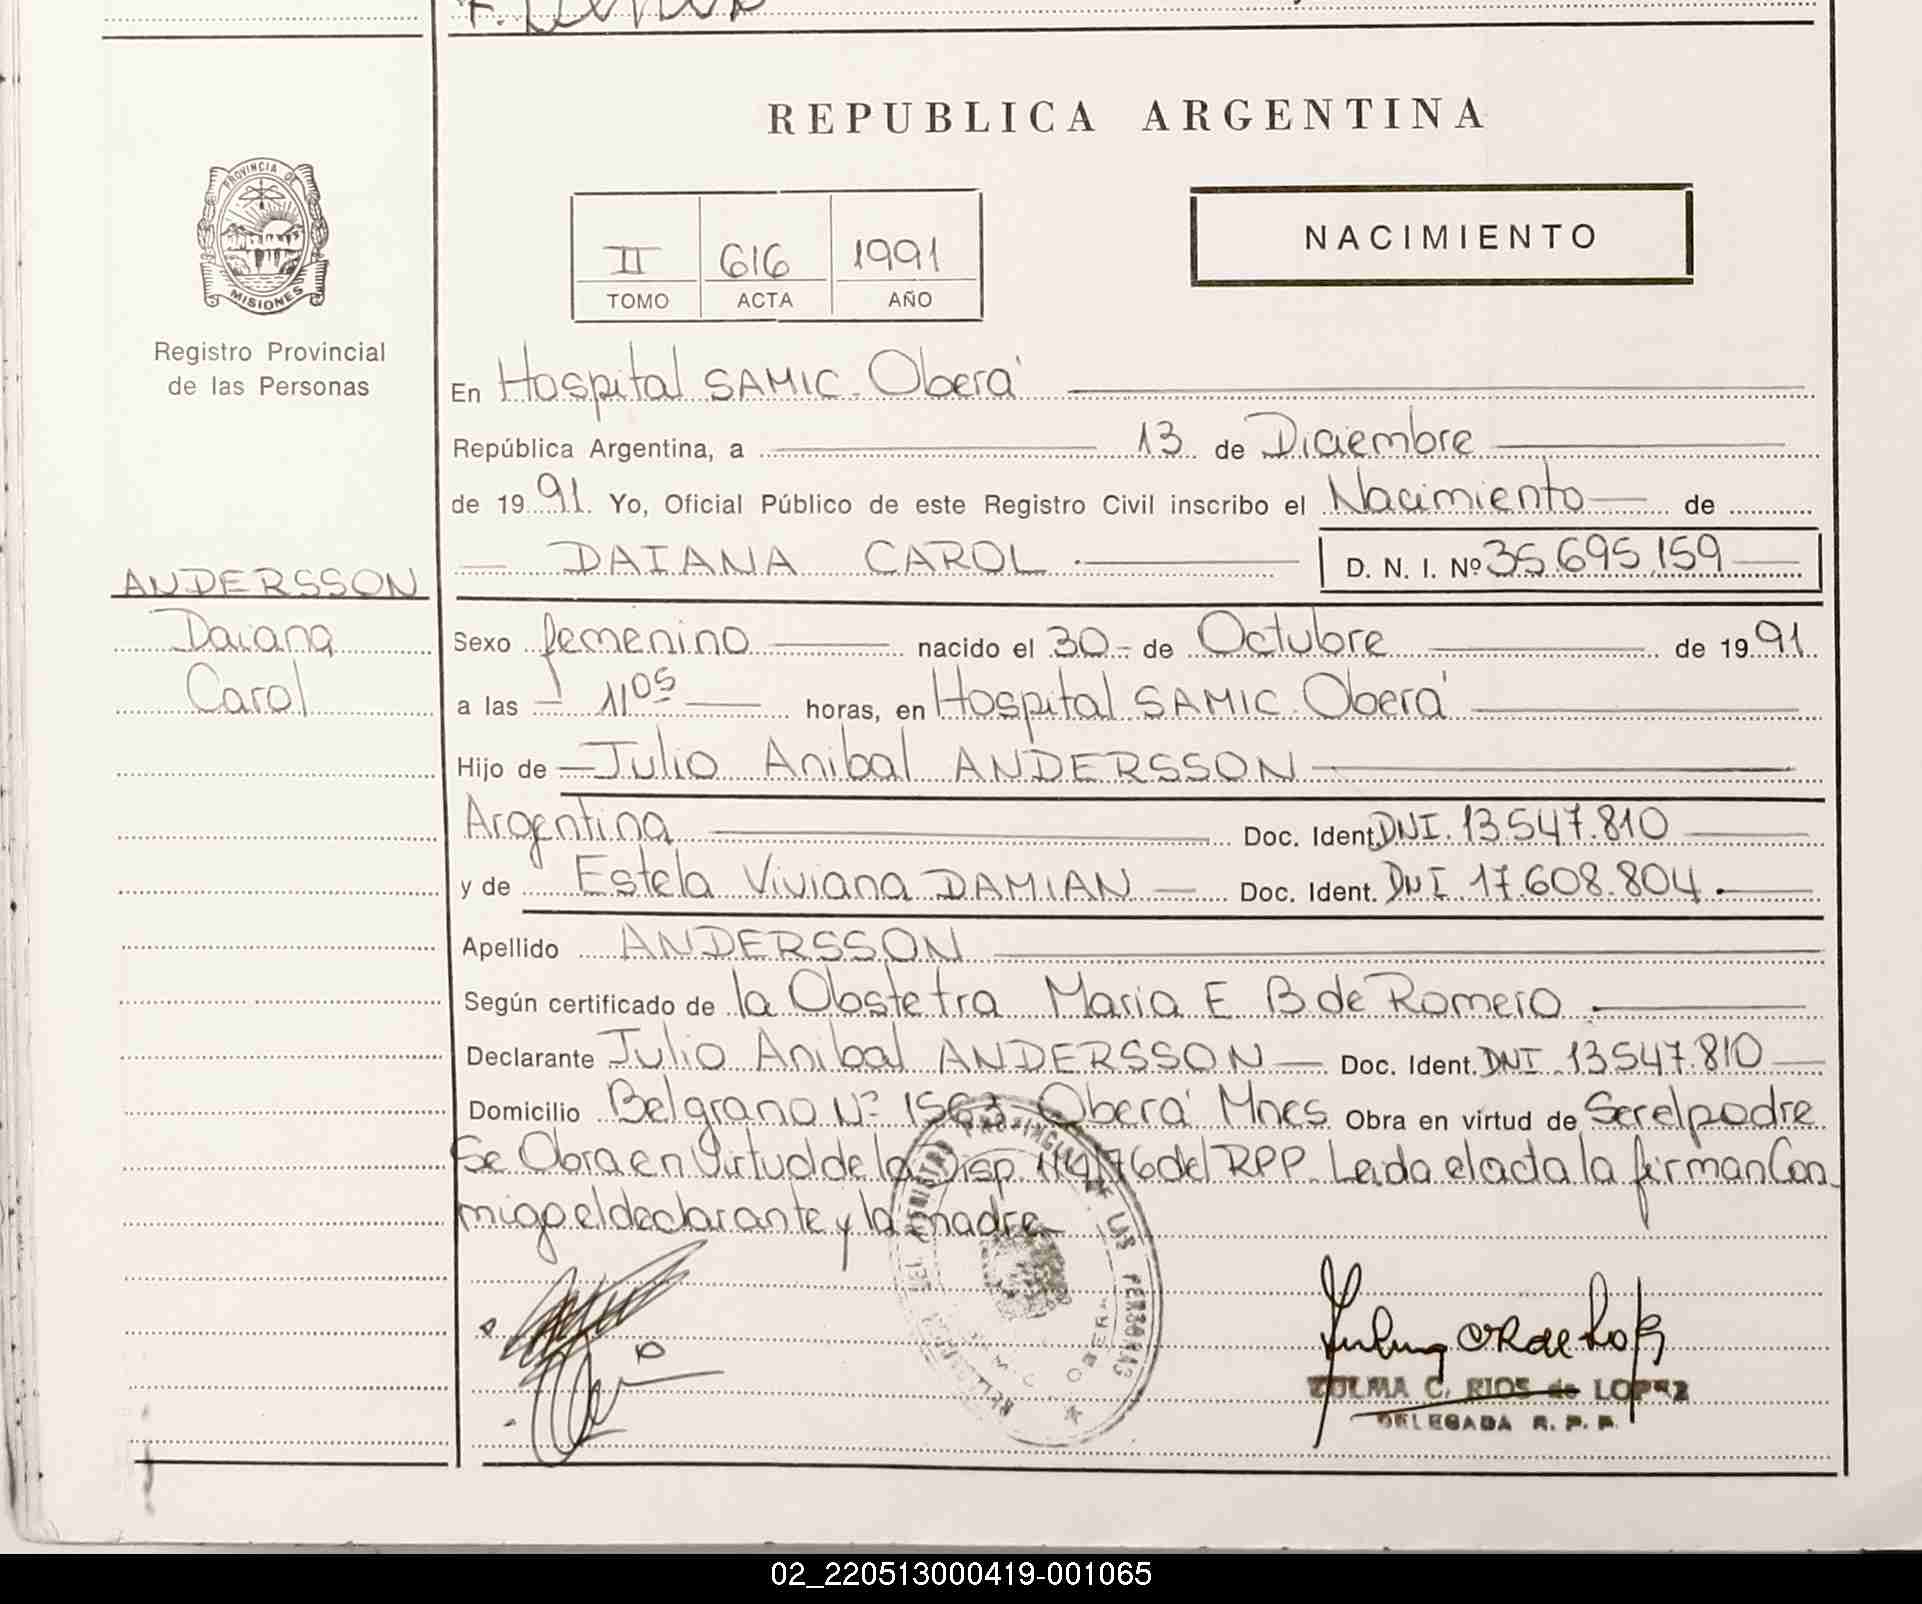 REPUBLICA ARGENTINA
PROVINCIA DE
MISIONES
Registro Provincial
de las Personas
II 616 1991
TOMO ACTA AÑO
NACIMIENTO
En Hospital SAMIC. Oberá
República Argentina, a 13 de Diciembre
de 19 91. Yo, Oficial Público de este Registro Civil inscribo el Nacimiento de
DAIANA CAROL D. N. I. Nº 35.695.159
ANDERSSON
Daiana
Carol
Sexo femenino nacido el 30 de Octubre de 19 91
a las 11 05 horas, en Hospital SAMIC. Oberá
Hijo de Julio Anibal ANDERSSON
Argentina Doc. Ident. DNI. 13.547.810
y de Estela Viviana DAMIAN Doc. Ident. DNI. 17.608.804
Apellido ANDERSSON
Según certificado de la Obstetra Maria E B de Romero
Declarante Julio Anibal ANDERSSON Doc. Ident. DNI. 13.547.810
Domicilio Belgrano Nº 1563 Oberá Mnes. Obra en virtud de Ser el padre
Se Obra en Virtud de la Disp. 114/76 del RPP. Leida el acta la firman Con
migo el declarante y la madre
REGISTRO PROVINCIAL DE LAS PERSONAS
OBERA
ZULMA C. RIOS de LOPEZ
DELEGADA R. P. P.
02_220513000419-001065